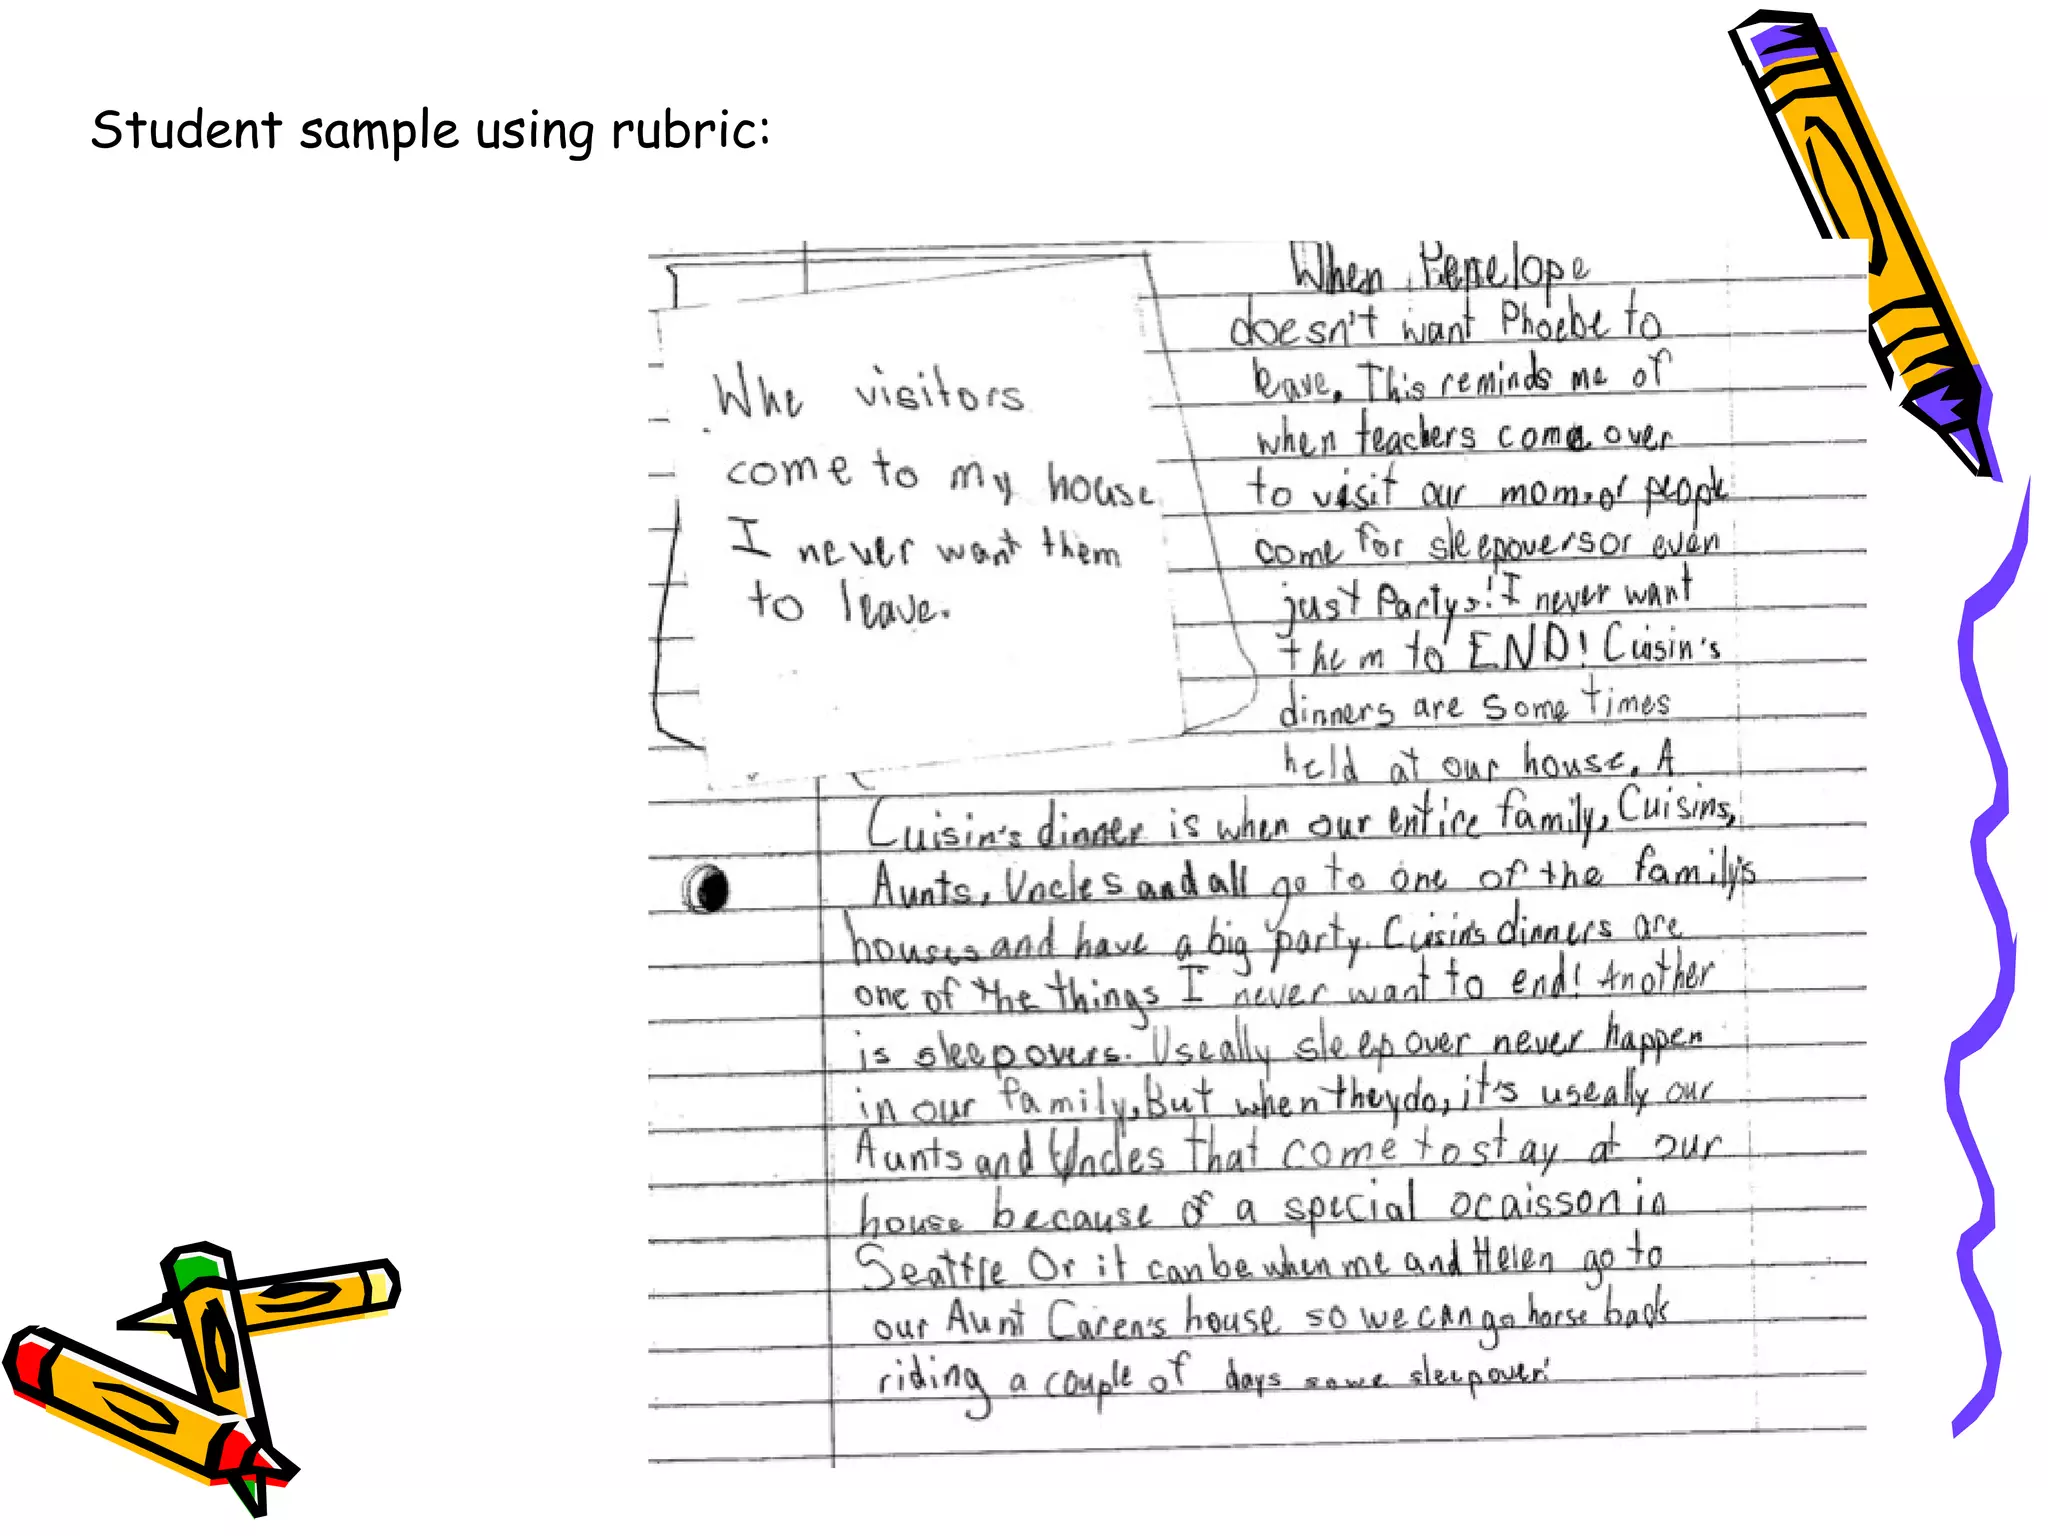 Student sample using rubric:
Whe visitors
come to my house
I never want them
to leave.
When Penelope
doesn't want Phoebe to
leave. This reminds me of
when teachers come over
to visit our mom. or people
come for sleepovers or even
just Partys! I never want
them to END! Cuisin's
dinners are some times
held at our house. A
Cuisin's dinner is when our entire family, Cuisins,
Aunts, Uncles and all go to one of the family's
houses and have a big party. Cuisin's dinners are
one of the things I never want to end! Another
is sleepovers. Useally sleepover never happen
in our family, But when they do, it's useally our
Aunts and Uncles that come to stay at our
house because of a special ocaisson in
Seattle Or it can be when me and Helen go to
our Aunt Caren's house so we can go horse back
riding a couple of days sowe sleepover!